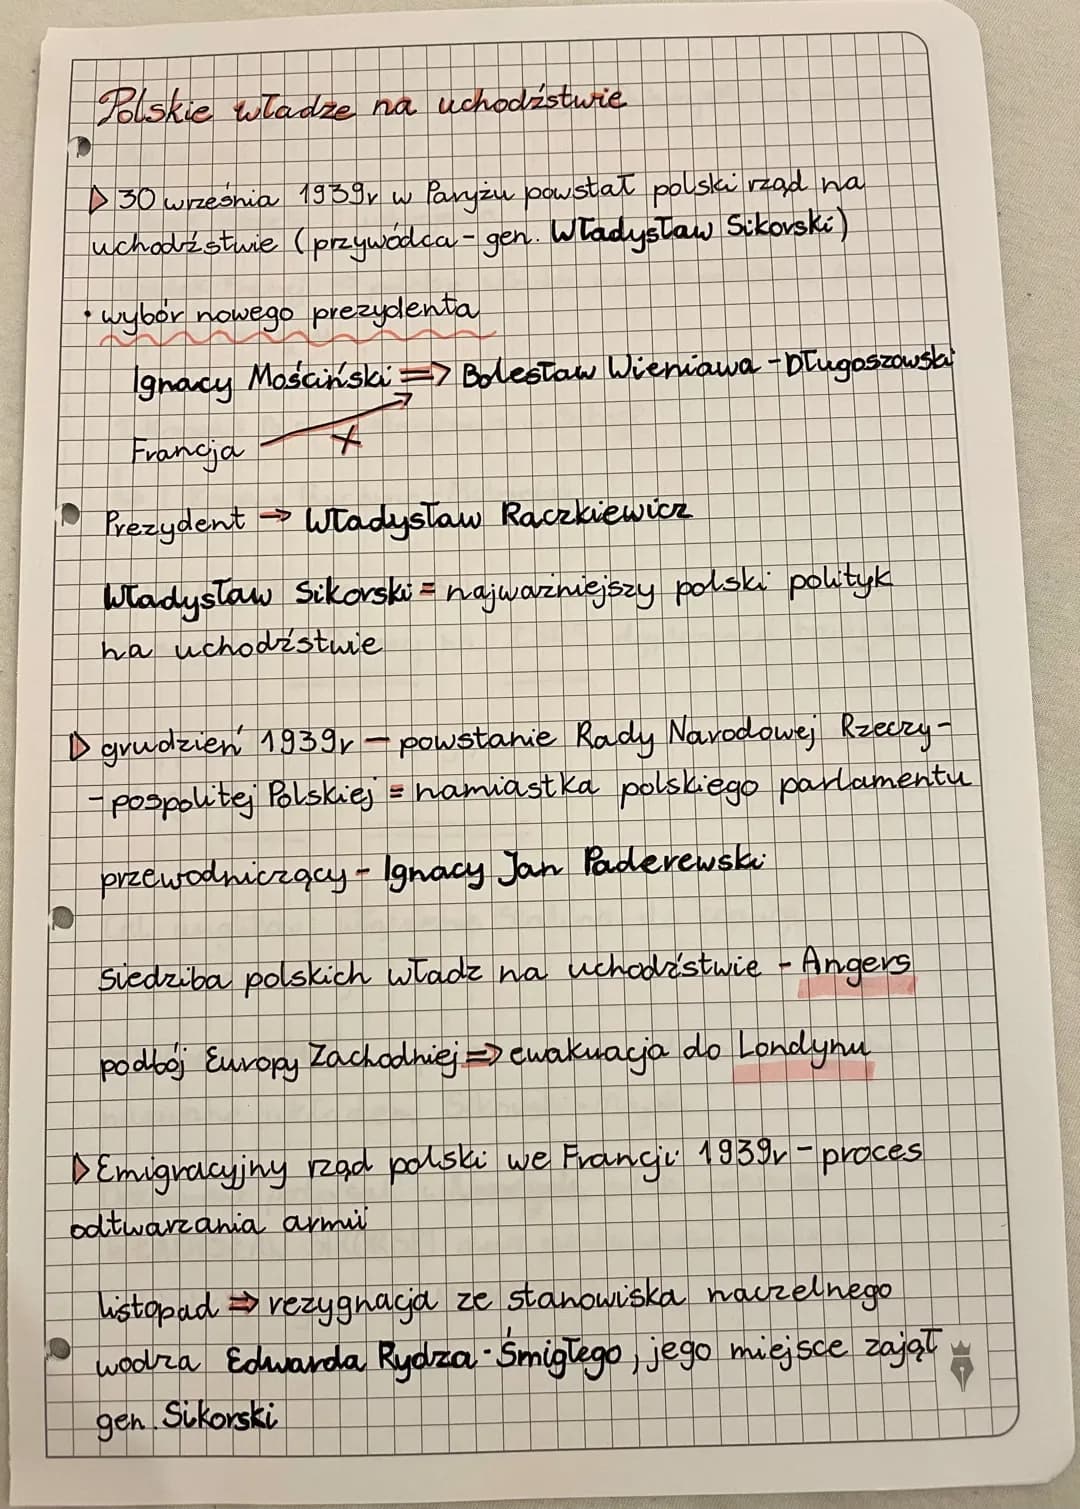 Polskie władze na uchodźstwie
30 września 1939r w Paryżu powstał polski rząd na
uchodźstwie (przywódca - gen. Władysław Sikorski)
• wybór nowego prezydenta
Ignacy Mościński => Bolesław Wieniawa - Długoszowski
Francja x
Prezydent → Władysław Raczkiewicz
Władysław Sikorski = najważniejszy polski polityk
na uchodźstwie
grudzień 1939r - powstanie Rady Narodowej Rzeczy-
-pospolitej Polskiej = namiastka polskiego parlamentu
przewodniczący - Ignacy Jan Paderewski
siedziba polskich władz na uchodźstwie - Angers
podbój Europy Zachodniej => ewakuacja do Londynu
Emigracyjny rząd polski we Francji 1939r - proces
odtwarzania armii
listopad => rezygnacja ze stanowiska naczelnego
wodza Edwarda Rydza - Śmigłego, jego miejsce zajął
gen. Sikorski